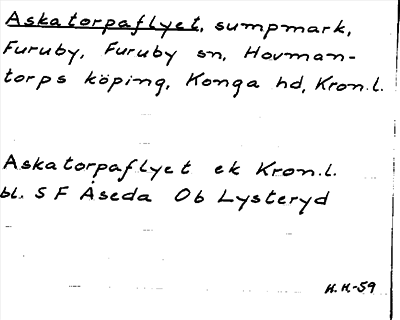 Askatorpaflyet, sumpmark,
Furuby, Furuby sn, Hovman-
torps köping, Konga hd, Kron.l.
Askatorpaflyet ek Kron.l.
bl. S F Åseda Ob Lysteryd
H.H.-59